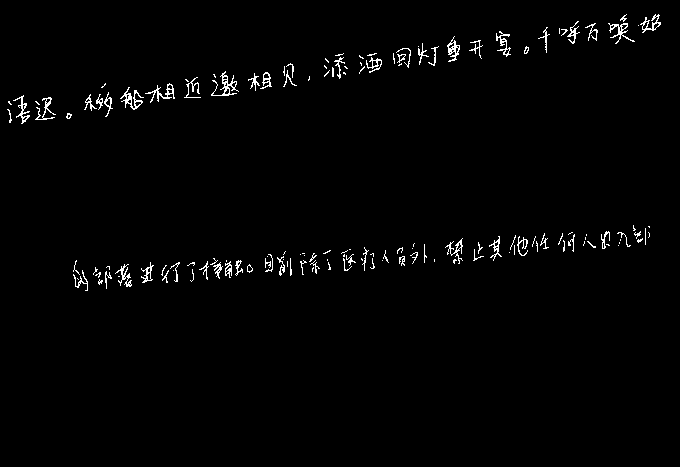 语迟。移船相近邀相见，添酒回灯重开宴。千呼万唤始
的部落进行了接触。目前除了医疗人员外，禁止其他任何人出入部